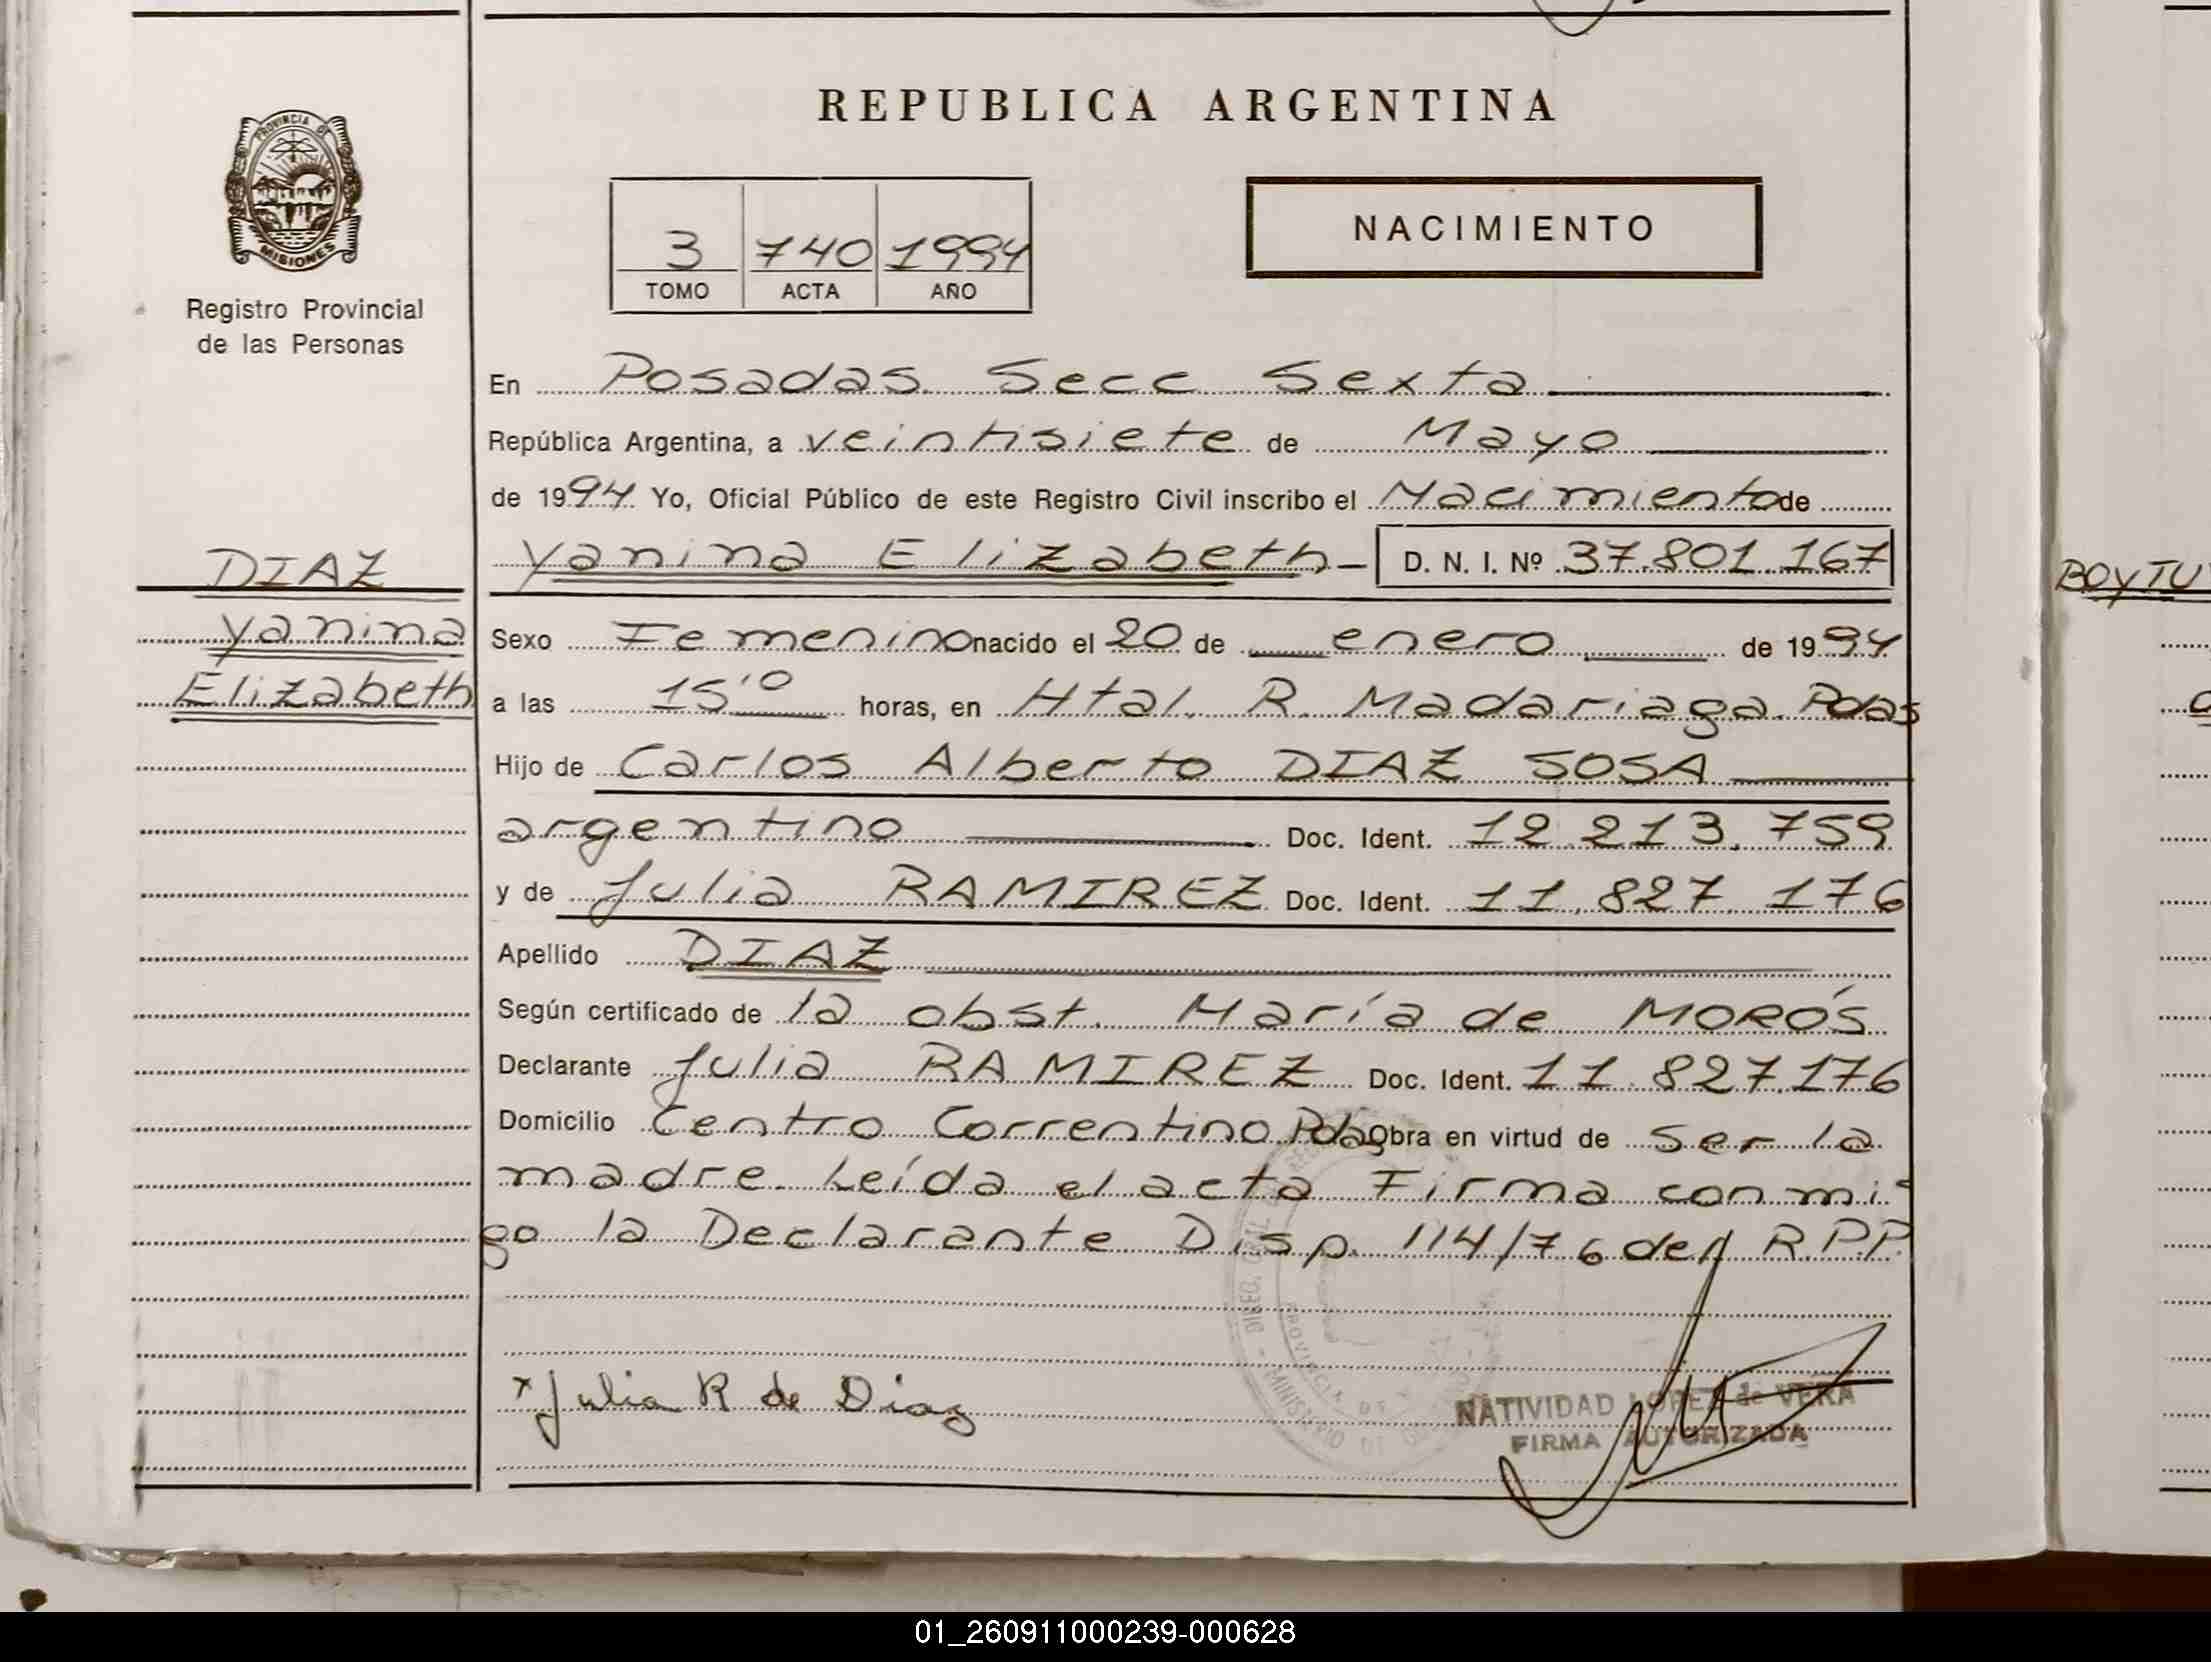 REPUBLICA ARGENTINA
PROVINCIA DE
MISIONES
Registro Provincial
de las Personas
NACIMIENTO
3 740 1994
TOMO ACTA AÑO
En Posadas Secc Sexta
República Argentina, a veintisiete de Mayo
de 1994 Yo, Oficial Público de este Registro Civil inscribo el Nacimiento de
DIAZ
Yanina
Elizabeth
Yanina Elizabeth D. N. I. Nº 37.801.167
Sexo Femenino nacido el 20 de enero de 1994
a las 15'0 horas, en Htal. R. Madariaga. Pdas
Hijo de Carlos Alberto DIAZ SOSA
argentino Doc. Ident. 12.213.759
y de Julia RAMIREZ Doc. Ident. 11.827.176
Apellido DIAZ
Según certificado de la obst. María de MORÓS
Declarante Julia RAMIREZ Doc. Ident. 11.827.176
Domicilio Centro Correntino Pdas Obra en virtud de ser la
madre. Leída el acta Firma conmi-
go la Declarante Disp. 114/76 del R.P.P.
x Julia R de Diaz
NATIVIDAD LOPEZ de VERA
FIRMA AUTORIZADA
BOYTU
01_260911000239-000628